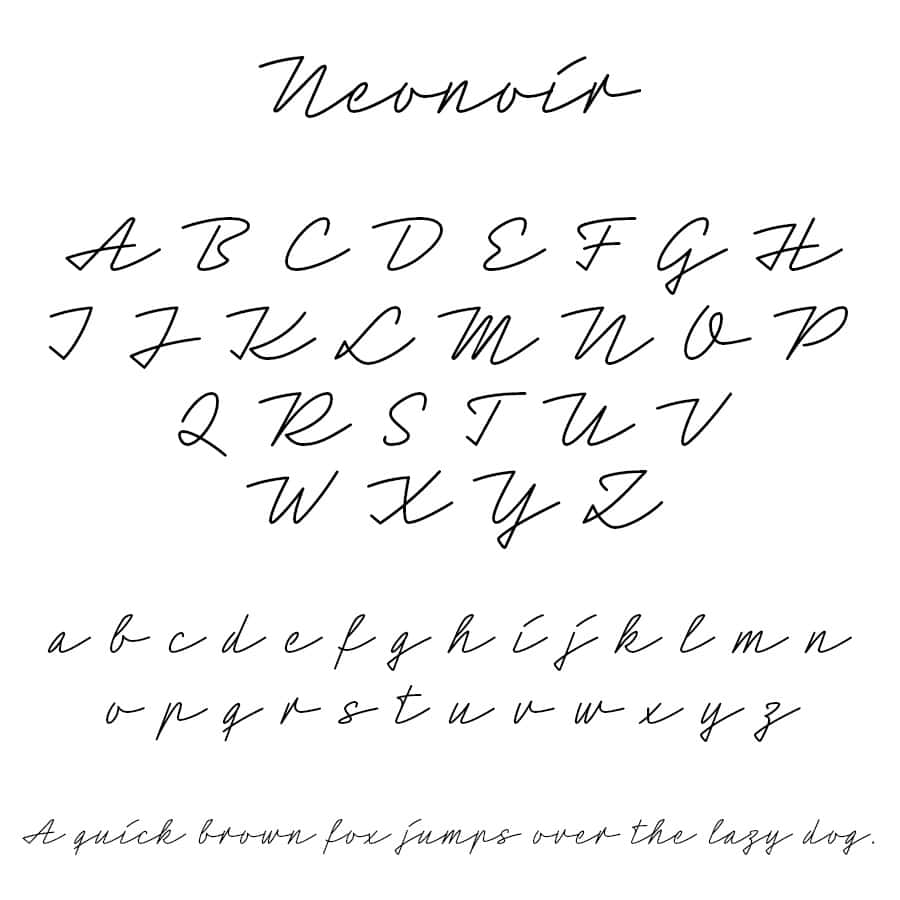 Neonoir
A B C D E F G H
I J K L M N O P
Q R S T U V
W X Y Z
a b c d e f g h i j k l m n
o p q r s t u v w x y z
A quick brown fox jumps over the lazy dog.